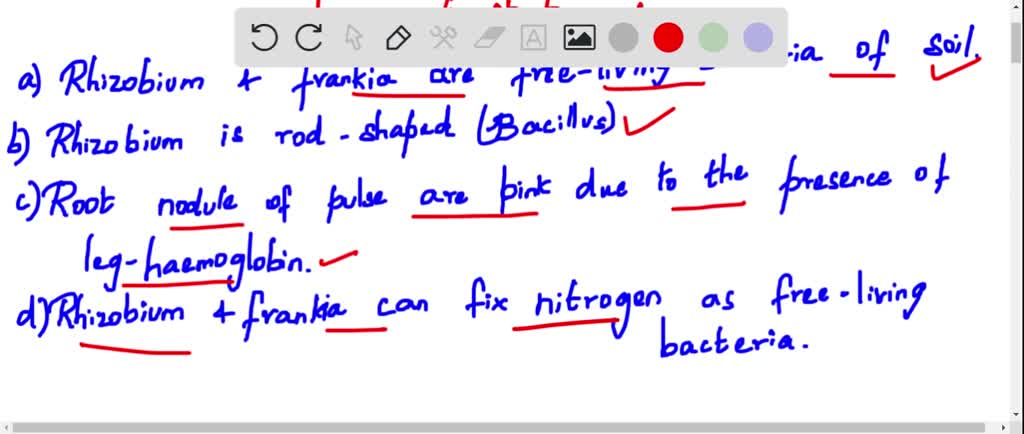 a) Rhizobium + frankia are free-living of soil.
b) Rhizobium is rod-shaped (Bacillus)
c) Root nodule of pulse are pink due to the presence of
leg-haemoglobin.
d) Rhizobium + frankia can fix nitrogen as free-living
bacteria.